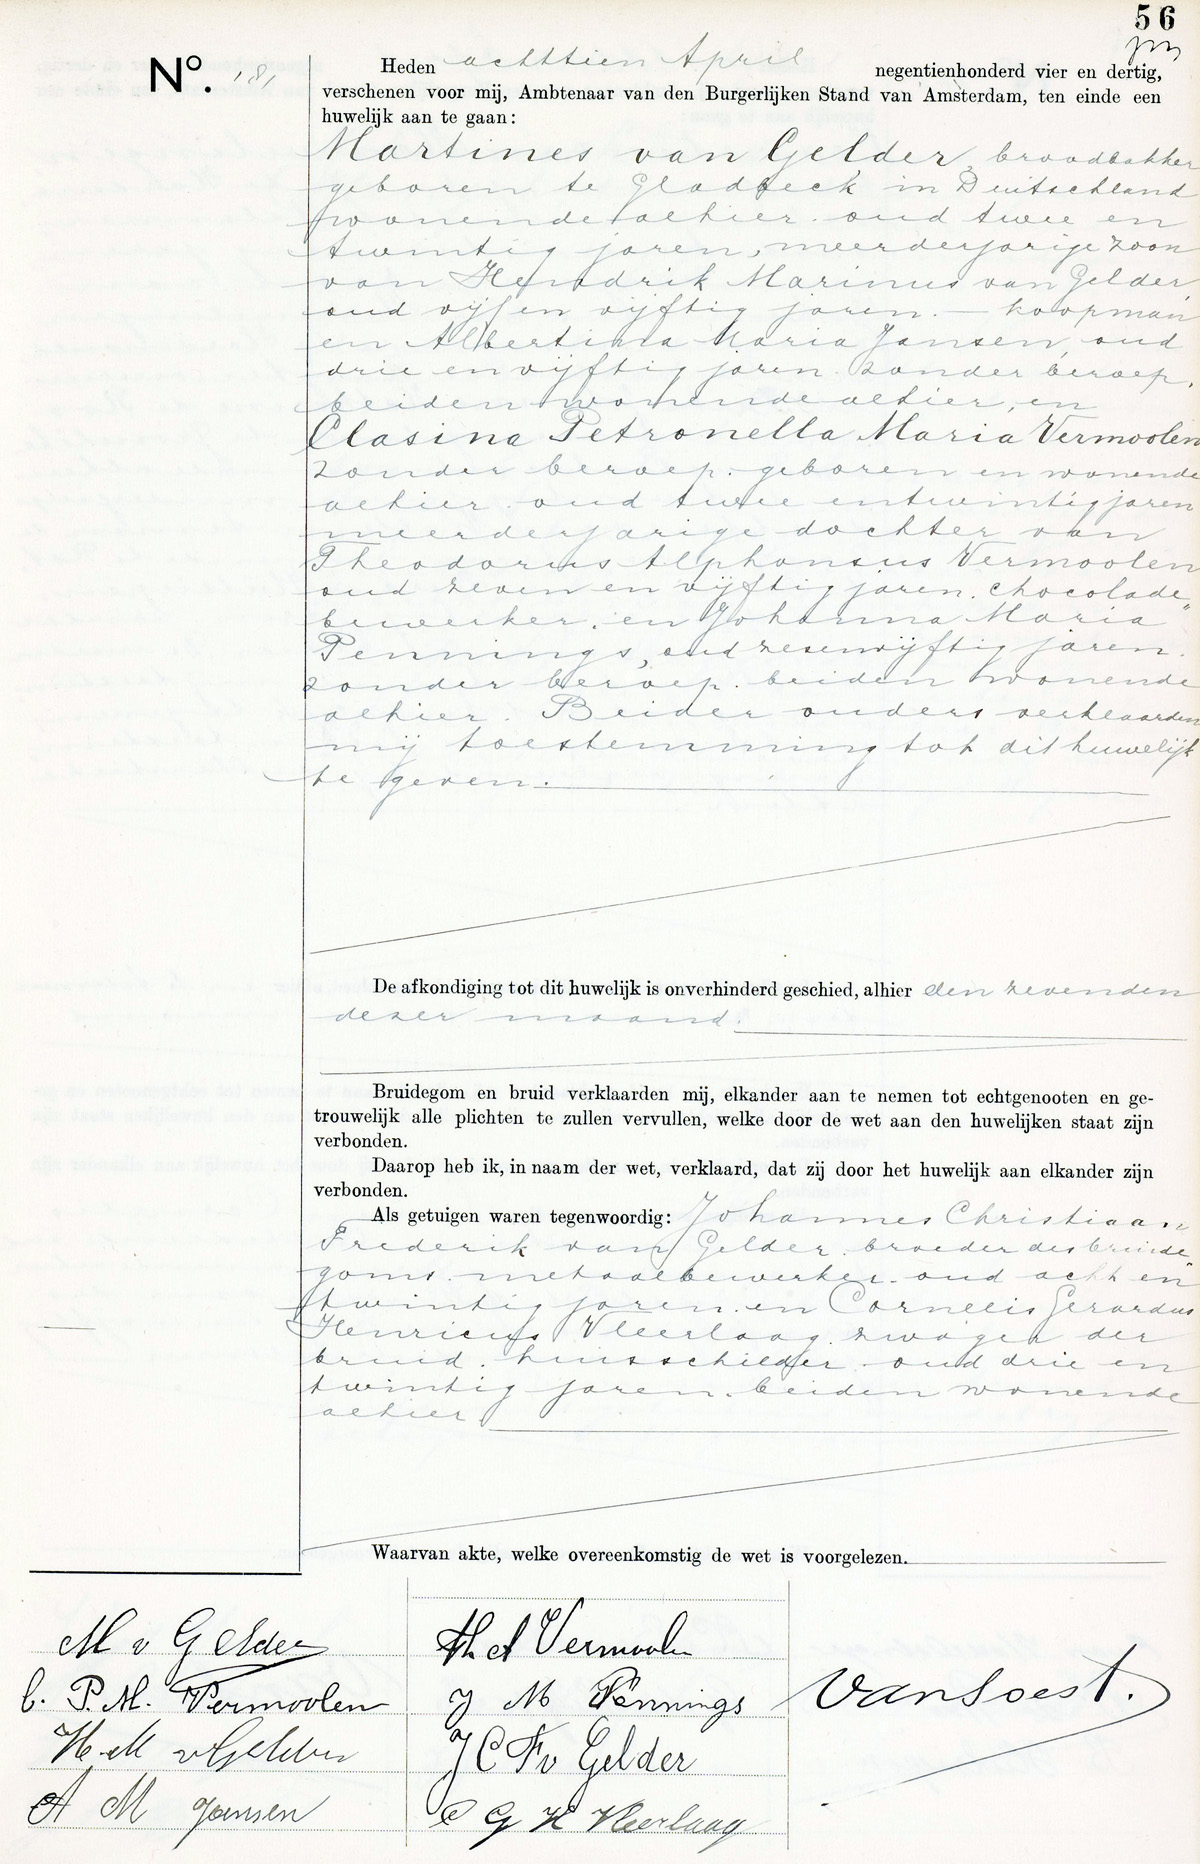 56
No. 181
Heden achttien April negentienhonderd vier en dertig,
verschenen voor mij, Ambtenaar van den Burgerlijken Stand van Amsterdam, ten einde een
huwelijk aan te gaan:
Martines van Gelder, broodbakker
geboren te Gladbeck in Duitschland
wonende alhier. oud twee en
twintig jaren, meerderjarige zoon
van Hendrik Marinus van Gelder,
oud vijf en vijftig jaren. — koopman
en Albertina Maria Jansen, oud
drie en vijftig jaren. zonder beroep,
beiden wonende alhier, en
Clasina Petronella Maria Vermoolen
zonder beroep. geboren en wonende
alhier. oud twee en twintig jaren
meerderjarige dochter van
Theodorus Alphonsus Vermoolen
oud zeven en vijftig jaren. chocolade„
bewerker. en Johanna Maria
Pennings, oud zesenvijftig jaren.
zonder beroep. beiden wonende
alhier. Beider ouders verklaarden
mij toestemming tot dit huwelijk
te geven.
De afkondiging tot dit huwelijk is onverhinderd geschied, alhier den zevenden
dezer maand.
Bruidegom en bruid verklaarden mij, elkander aan te nemen tot echtgenooten en ge-
trouwelijk alle plichten te zullen vervullen, welke door de wet aan den huwelijken staat zijn
verbonden.
Daarop heb ik, in naam der wet, verklaard, dat zij door het huwelijk aan elkander zijn
verbonden.
Als getuigen waren tegenwoordig: Johannes Christiaan
Frederik van Gelder. broeder des bruide„
goms. metaalbewerker. oud acht en
twintig jaren. en Cornelis Gerardus
Henricus Vleerlaag. zwager der
bruid. huisschilder. oud drie en
twintig jaren. beiden wonende
alhier.
Waarvan akte, welke overeenkomstig de wet is voorgelezen.
M v Gelder
C. P. M. Vermoolen
H. M v Gelder
A M Jansen
Th A Vermoolen
J M Pennings
J C F v Gelder
C G H Vleerlaag
van Soest.